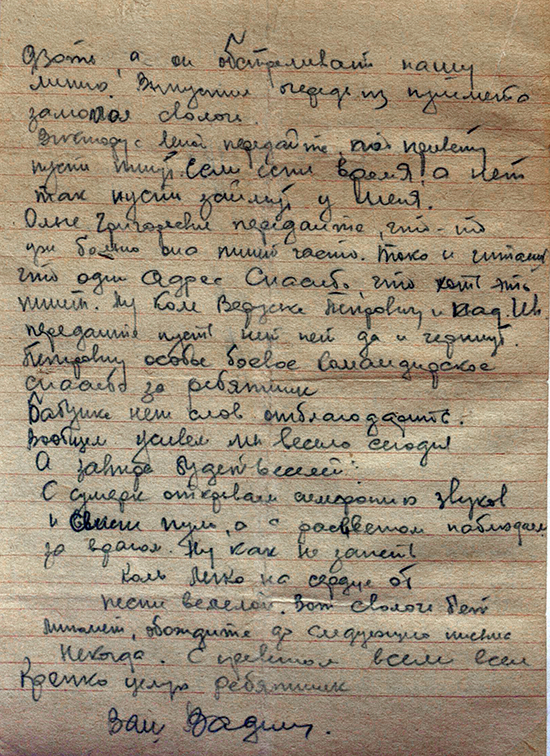 дзоты, а он обстреливает нашу
линию. Выпустил очередь из пулемета
замолкла сволочь.
Виктору с Леной передайте мой привет,
пусть пишут. Если есть время, а нет
так пусть займут у меня.
Ольге Григорьевне передайте, что-то
уж больно она пишет часто. Токо и читаешь
что один адрес Спасибо, что хоть это
пишет. Ну Петровичу и
передайте пусть пей да и
Петровичу особое боевое командирское
спасибо за ребятишек
Бабушке нет слов отблагодарить.
Вообщем живем мы весело сегодня
А завтра будет веселей.
С сумерк открываем симфонию звуков
и свист пуль, а с рассветом наблюдаем
за врагом. Ну как не запеть
Коль легко на сердце от
песни веселой. Вот сволочь бьет
миномет, обождите до следующего письма
Некогда. С приветом всем всем
Крепко целую ребятишек
Ваш Вадим.